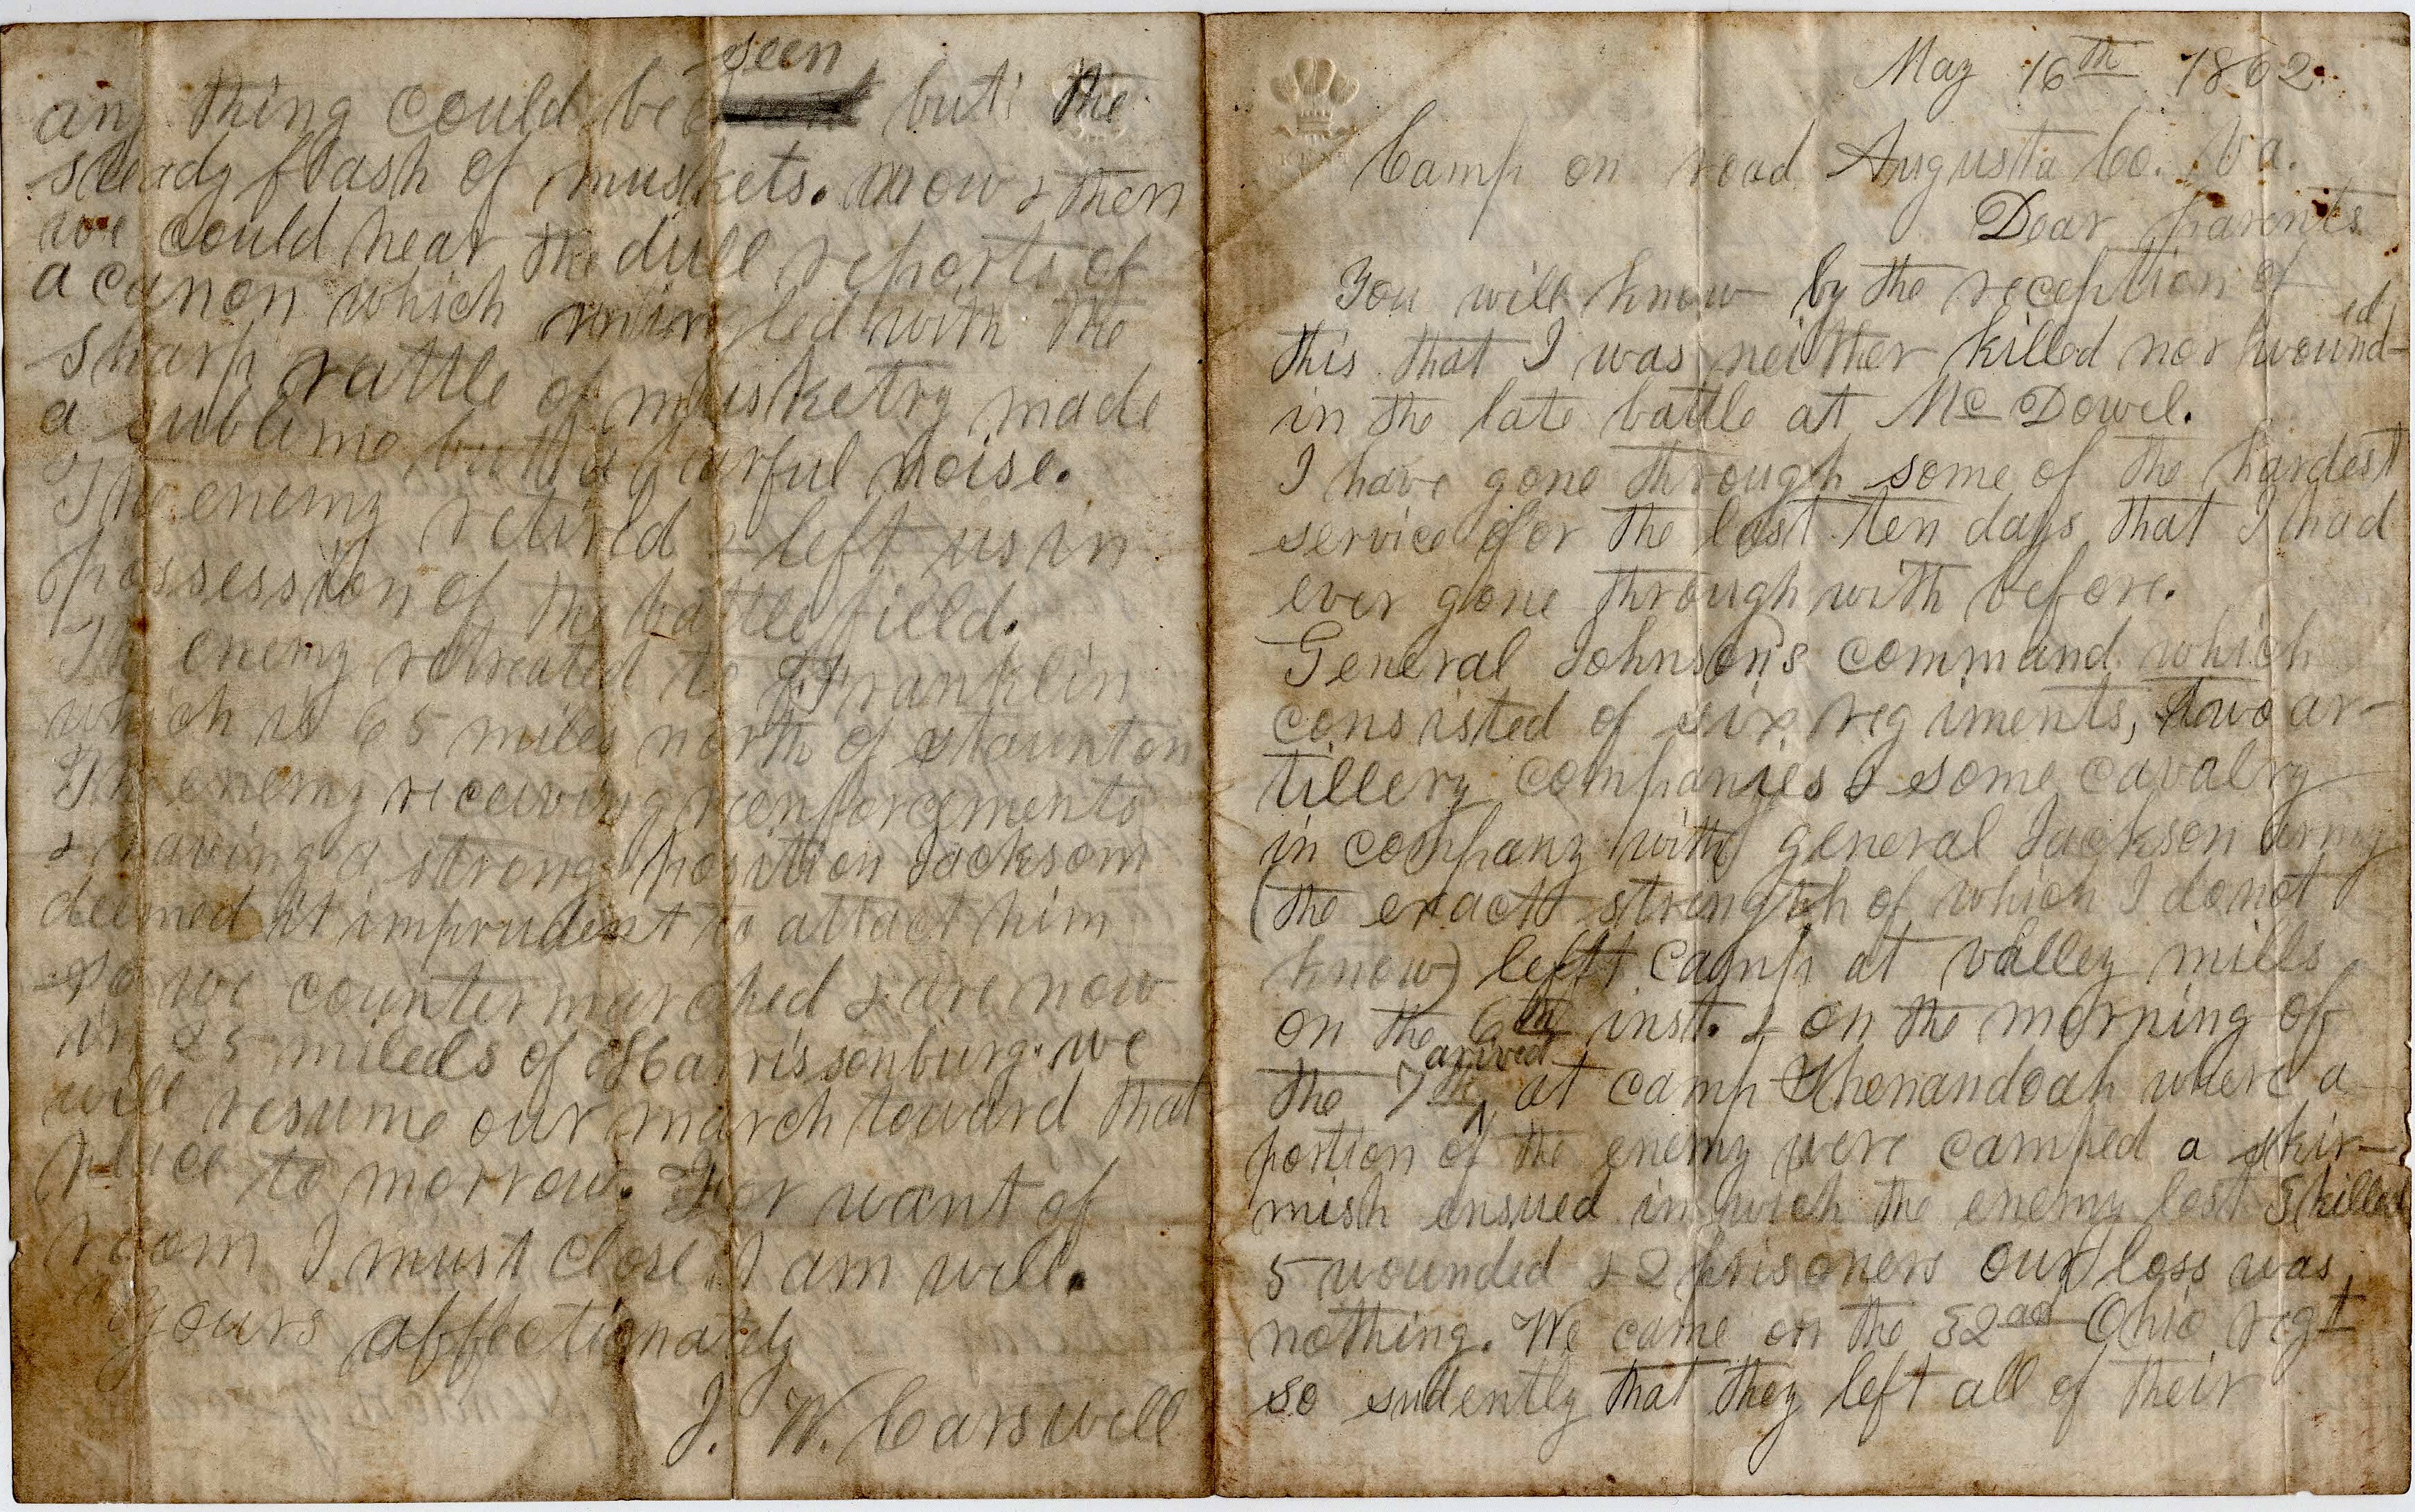 May 16th 1862.
Camp on road Augusta Co. Va.
Dear parents
You will know by the reception of
this that I was neither killed nor wound-ed
in the late battle at Mc Dowel.
I have gone through some of the hardest
service for the last ten days that I had
ever gone through with before.
General Johnson's command which
consisted of six regiments, two ar-
tillery companies & some cavalry
in company with general Jackson army
(the exactt strength of which I do not
know) left camp at valley mills
on the 6th inst. & on the morning of
the 7th arived at camp Shenandoah where a
portion of the enemy were camped a skir-
mish ensued in wich the enemy lost 5 killed
5 wounded & 2 prisoners our loss was
nothing. We came on the 32nd Ohio regt
so sudently that they left all of their
KENT
any thing could be seen but the
steady flash of muskets. now & then
we could hear the dull reports of
a canon which mingled with the
sharp rattle of musketry made
a sublime but a fearful noise.
The enemy retired & left us in
possession of the battle field.
The enemy retreated to Franklin
which is 65 miles north of staunton
The enemy receiving reenforcements
& having a strong position Jackson
deemed it imprudent to attact him
so we counter marched & are now
in 25 mileds of Harrissonburg. we
will resume our march toward that
place to morrow. For want of
room I must close. I am well.
yours affectionately
J. W. Carswell